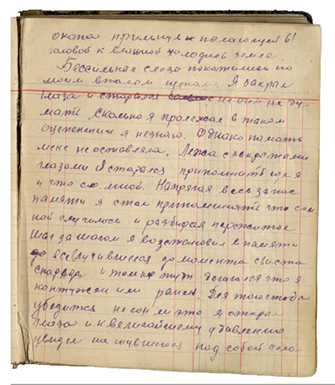 окопа прильнув и полагающей б/
головой к влажной холодной земле
Бессильная слеза покатилась по
моим впалым щекам. Я закрыл
глаза и старался ни о чем не ду
мать сколько я пролежал в таком
оцепенении я не знаю. Однако память
меня не оставляла. Лежа с закрытыми
глазами я старался припомнить где я
и что со мной. Напрягая весь запас
памяти я стал припоминать что со м
ной случилось и разбирая пережитое
шаг за шагом я восстановил в памяти
до все случившееся до момента свиста
снаряда и только тут догадался что я
контужен или ранен. Для того чтобы
убедится не сон ли это я открыл
глаза и к величайшему удивлению
увидел на
над собой